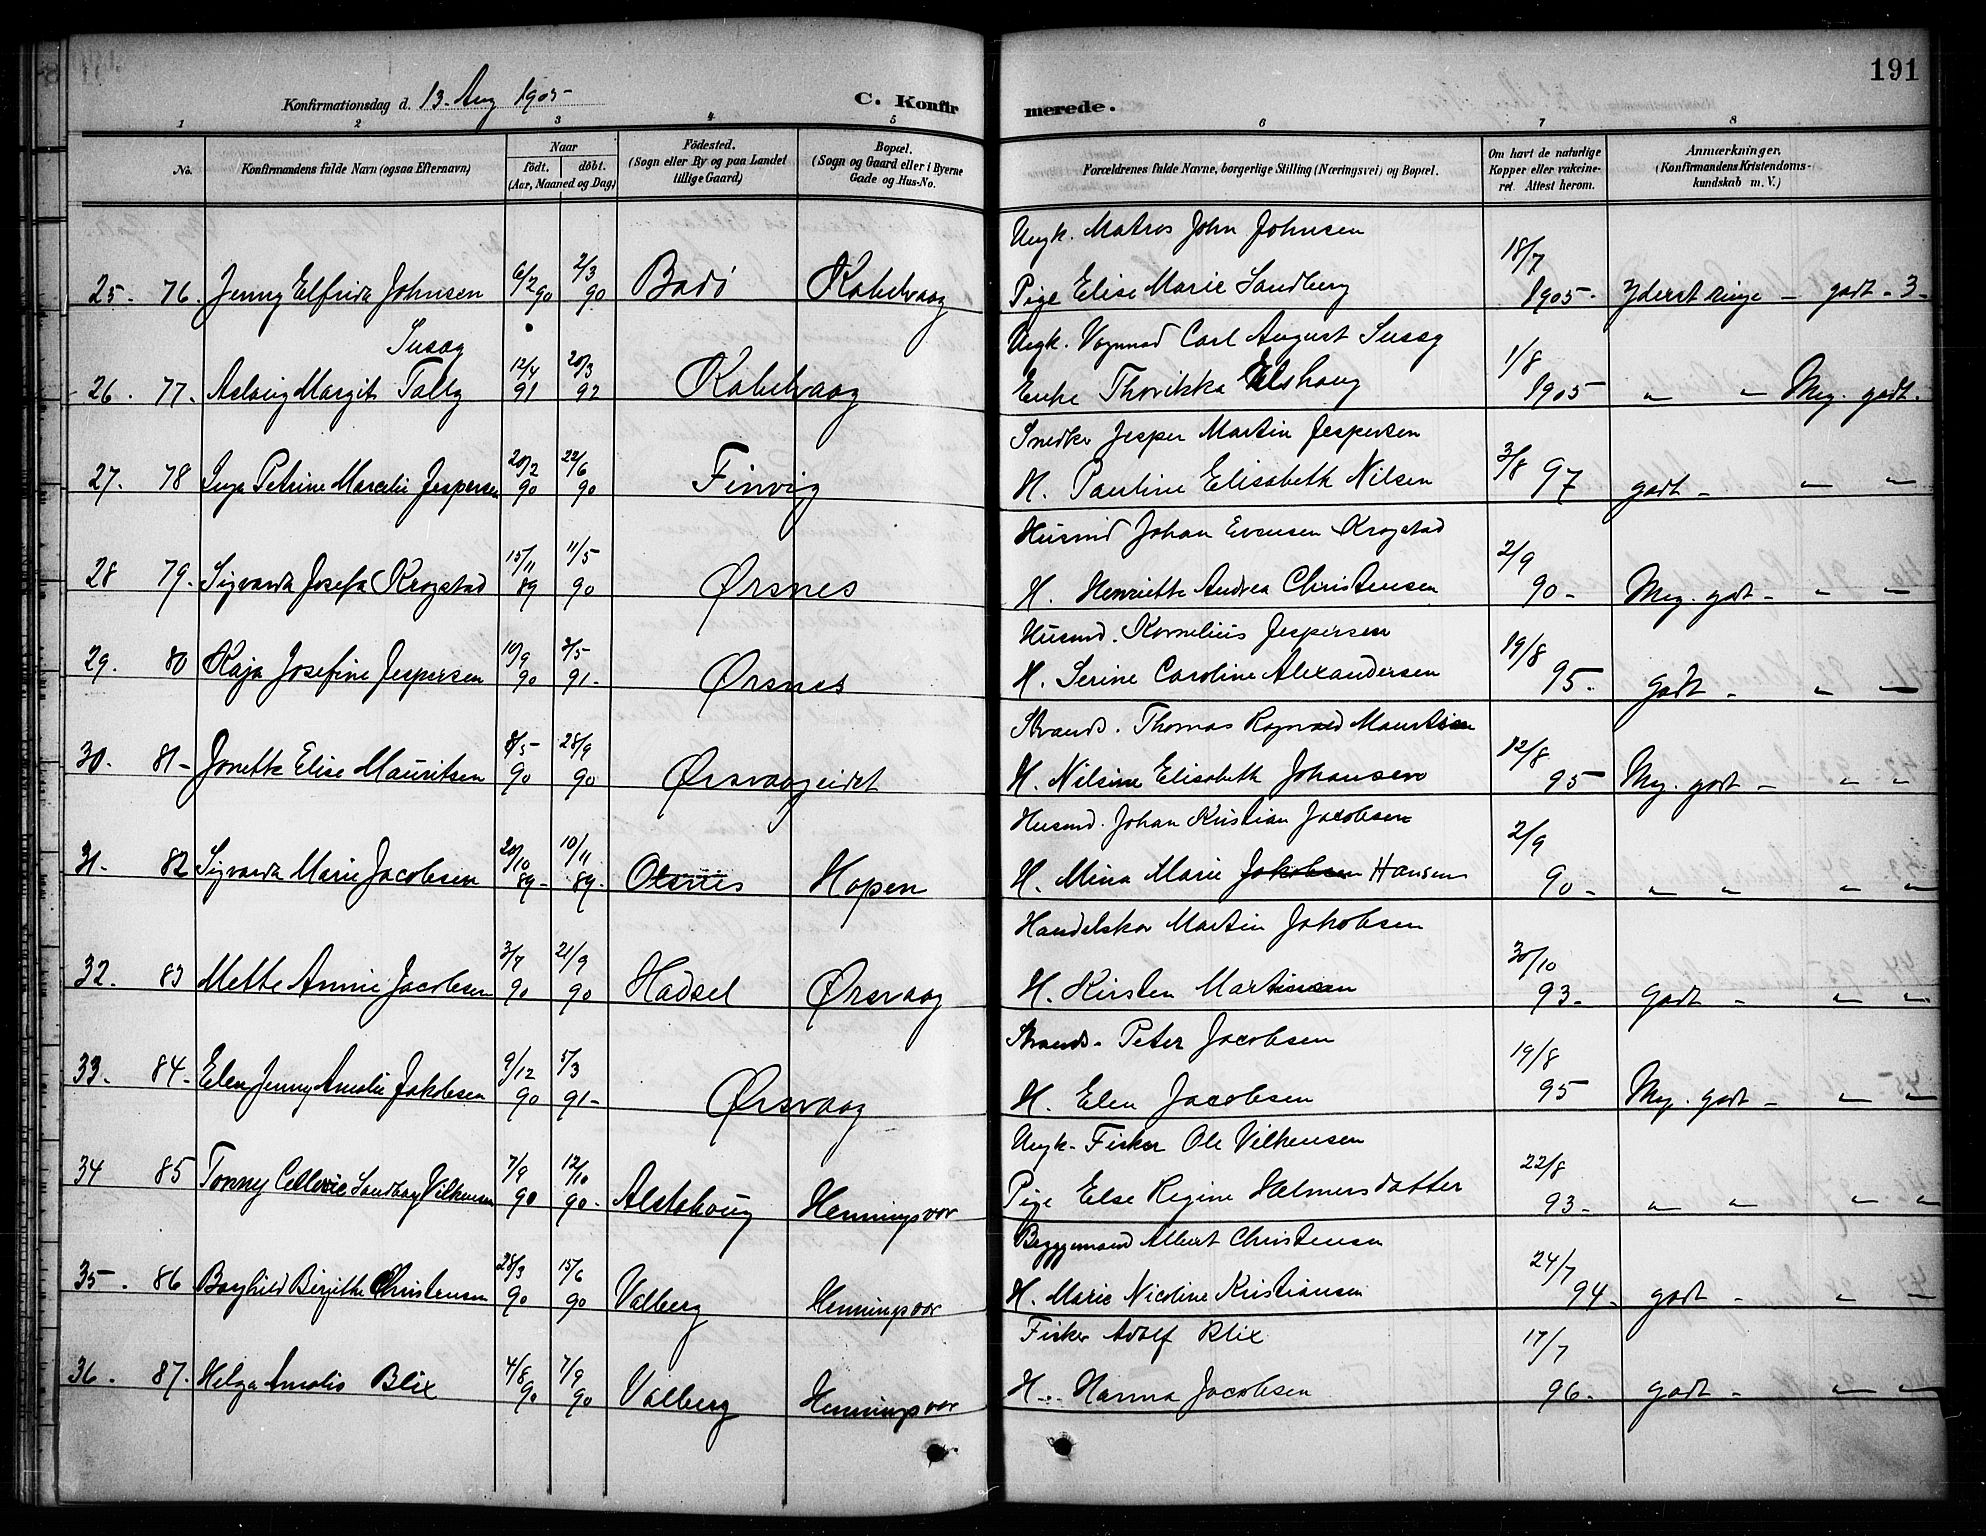 191
Konfirmationsdag d. 13. Aug 1905
C. Konfirmerede.
1 2 3 4 5 6 7 8
No. Konfirmandens fulde Navn (ogsaa Efternavn) Naar født. døbt. (Aar, Maaned og Dag) Fødested. (Sogn eller By og paa Landet tillige Gaard) Bopæl. (Sogn og Gaard eller i Byerne Gade og Hus-No. Forældrenes fulde Navne, borgerlige Stilling (Næringsvei) og Bopæl. Om havt de naturlige Kopper eller vakcineret. Attest herom. Anmærkninger. (Konfirmandens Kristendomskundskab m. V.)
Ungk. Matros John Johnsen
25. 76. Jenny Elfrida Johnsen 6/2 90 2/3 90 Bodø Kabelvaag Pige Elise Marie Sandberg 18/7 1905. Yderst ringe - godt - 3 -
Susag
Ungk. Carl August Susag
26. 77. Aslaug Margit 12/4 91 20/3 92 Kabelvaag Enke Thorikka 1/8 1905 " " Meg. godt.
Snedker Jesper Martin Jespersen
27. 78 Inga Petrine Marcelie Jespersen 20/2 90 22/6 90 Finvig H. Pauline Elisabeth Nilsen 3/8 97 godt - " "
Husmd Johan Evensen Krogstad
28 79. Sigvarda Josefa Krogstad 15/11 89 11/5 90 Ørsnes H. Henriette Andrea Christensen 2/9 90 - Meg. godt - " "
Husmd. Kornelius Jespersen
29. 80 Kaja Josefine Jespersen 10/9 90 3/5 91 - Ørsnes H. Serine Caroline Alexandersen 19/8 95. godt - " "
Strands. Thomas Ragnvald Mauritsen
30. 81 - Jonette Elise Mauritsen 8/5 90 28/9 90 Ørsvaageidet H. Nilsine Elisabeth Johansen 12/8 95 Meg. godt - " "
Husmd. Johan Kristian Jacobsen
31. 82 Sigvarda Marie Jacobsen 20/10 89 - 10/11 89. Hopen H. Mina Marie Jakobsen Hansen 2/9 90 - " " " "
Handelskar Martin Jakobsen
32. 83 Mette Annie Jacobsen 3/7 90 21/9 90 Hadsel Ørsvaag H. Kirsten Martinsen 30/10 93 - godt - " "
Strands. Peter Jacobsen
33. 84 - Elen Jenny Amalie Jakobsen 9/12 90 5/3 91 - Ørsvaag H. Elen Jacobsen 19/8 95 Meg. godt - " "
Ungk. Fisker Ole Vilhensen
34 85 Tonny Sandbag Vilhensen 7/9 90 12/10 90 - Alstahoug Henningsvær Pige Else Regine Hælmersdatter 22/8 93 - " " " "
Byggmand Albert Christensen
35. 86 Borghild Birgithe Christensen 28/3 90 15/6 90 Valberg Henningsvær H. Marie Nicoline Kristiansen 24/7 94 - godt - " "
Fisker Adolf Blix
36. 87. Helga Amalie Blix 4/8 90 7/9 90 Valberg Henningsvær H. Hanna Jacobsen 17/7 96 - godt - " "